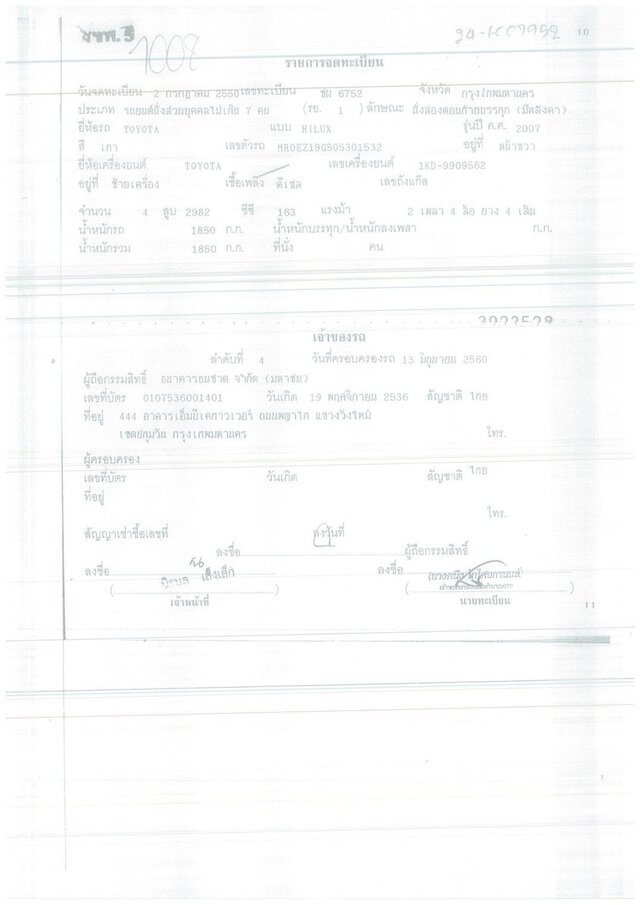 สขพ. 3
1008
10
รายการจดทะเบียน
วันจดทะเบียน 2 กรกฎาคม 2550 เลขทะเบียน ชน 6752 จังหวัด กรุงเทพมหานคร
ประเภท รถยนต์นั่งส่วนบุคคลไม่เกิน 7 คน (รย. 1 ) ลักษณะ นั่งสองตอนท้ายบรรทุก (มีหลังคา)
ยี่ห้อรถ TOYOTA แบบ HILUX รุ่นปี ค.ศ. 2007
สี เทา เลขตัวรถ MR0EZ19G505301532 อยู่ที่ หน้าขวา
ยี่ห้อเครื่องยนต์ TOYOTA เลขเครื่องยนต์ 1KD-9909552
อยู่ที่ ซ้ายเครื่อง เชื้อเพลิง ดีเซล เลขถังแก๊ส
จำนวน 4 สูบ 2982 ซีซี 163 แรงม้า 2 เพลา 4 ล้อ ยาง 4 เส้น
น้ำหนักรถ 1850 ก.ก. น้ำหนักบรรทุก/น้ำหนักลงเพลา ก.ก.
น้ำหนักรวม 1850 ก.ก. ที่นั่ง คน
เจ้าของรถ
ลำดับที่ 4 วันที่ครอบครองรถ 13 มิถุนายน 2560
ผู้ถือกรรมสิทธิ์ ธนาคารธนชาต จำกัด (มหาชน)
เลขที่บัตร 0107536001401 วันเกิด 19 พฤศจิกายน 2536 สัญชาติ ไทย
ที่อยู่ 444 อาคารเอ็มบีเคทาวเวอร์ ถนนพญาไท แขวงวังใหม่
เขตปทุมวัน กรุงเทพมหานคร โทร.
ผู้ครอบครอง
เลขที่บัตร วันเกิด สัญชาติ ไทย
ที่อยู่
โทร.
สัญญาเช่าซื้อเลขที่ ลงวันที่
ลงชื่อ ผู้ถือกรรมสิทธิ์
ลงชื่อ ลงชื่อ
เจ้าหน้าที่ นายทะเบียน
11